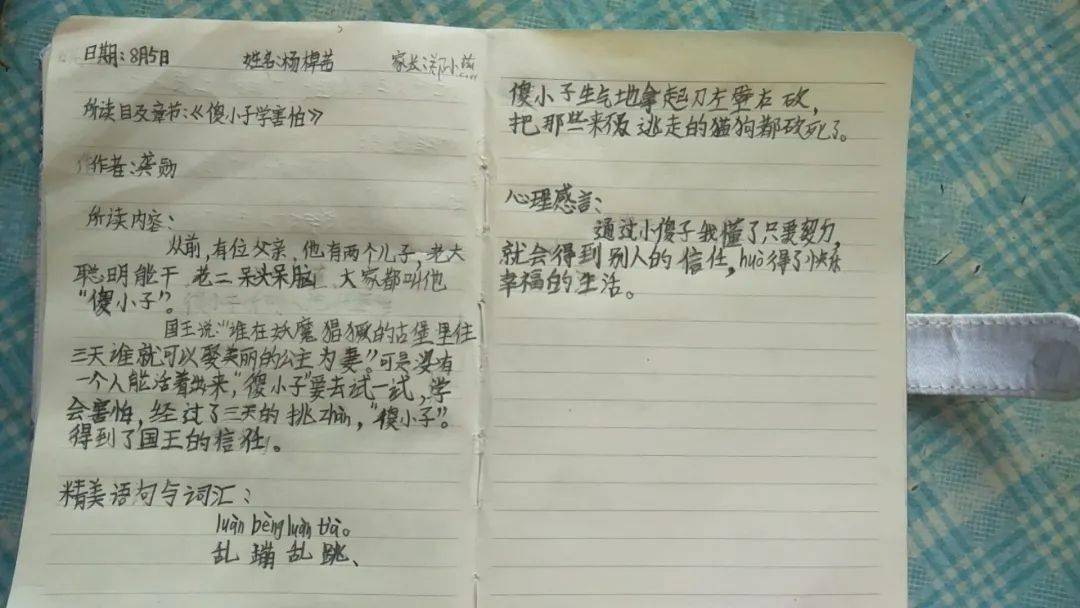 日期:8月5日 姓名:杨梓茜 家长:郑小燕
所读目及章节:《傻小子学害怕》
作者:龚勋
所读内容:
从前,有位父亲,他有两个儿子,老大
聪明能干 老二呆头呆脑 大家都叫他
“傻小子”。
国王说:“谁在妖魔猖獗的古堡里住
三天谁就可以娶美丽的公主为妻”。可是没有
一个人能活着出来,“傻小子”要去试一试,学
会害怕,经过了三天的挑zhàn,“傻小子”。
得到了国王的信任。
精美语句与词汇:
luàn bèng luàn tiào
乱蹦乱跳、
傻小子生气地拿起刀左劈右砍,
把那些来不及逃走的猫狗都砍死了。
心理感言:
通过小傻子我懂了只要努力,
就会得到别人的信任,huò得了快乐
幸福的生活。